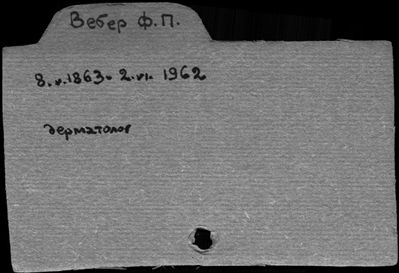 Вебер Ф.П.
8.v.1863. 2.vi. 1962
дерматолог